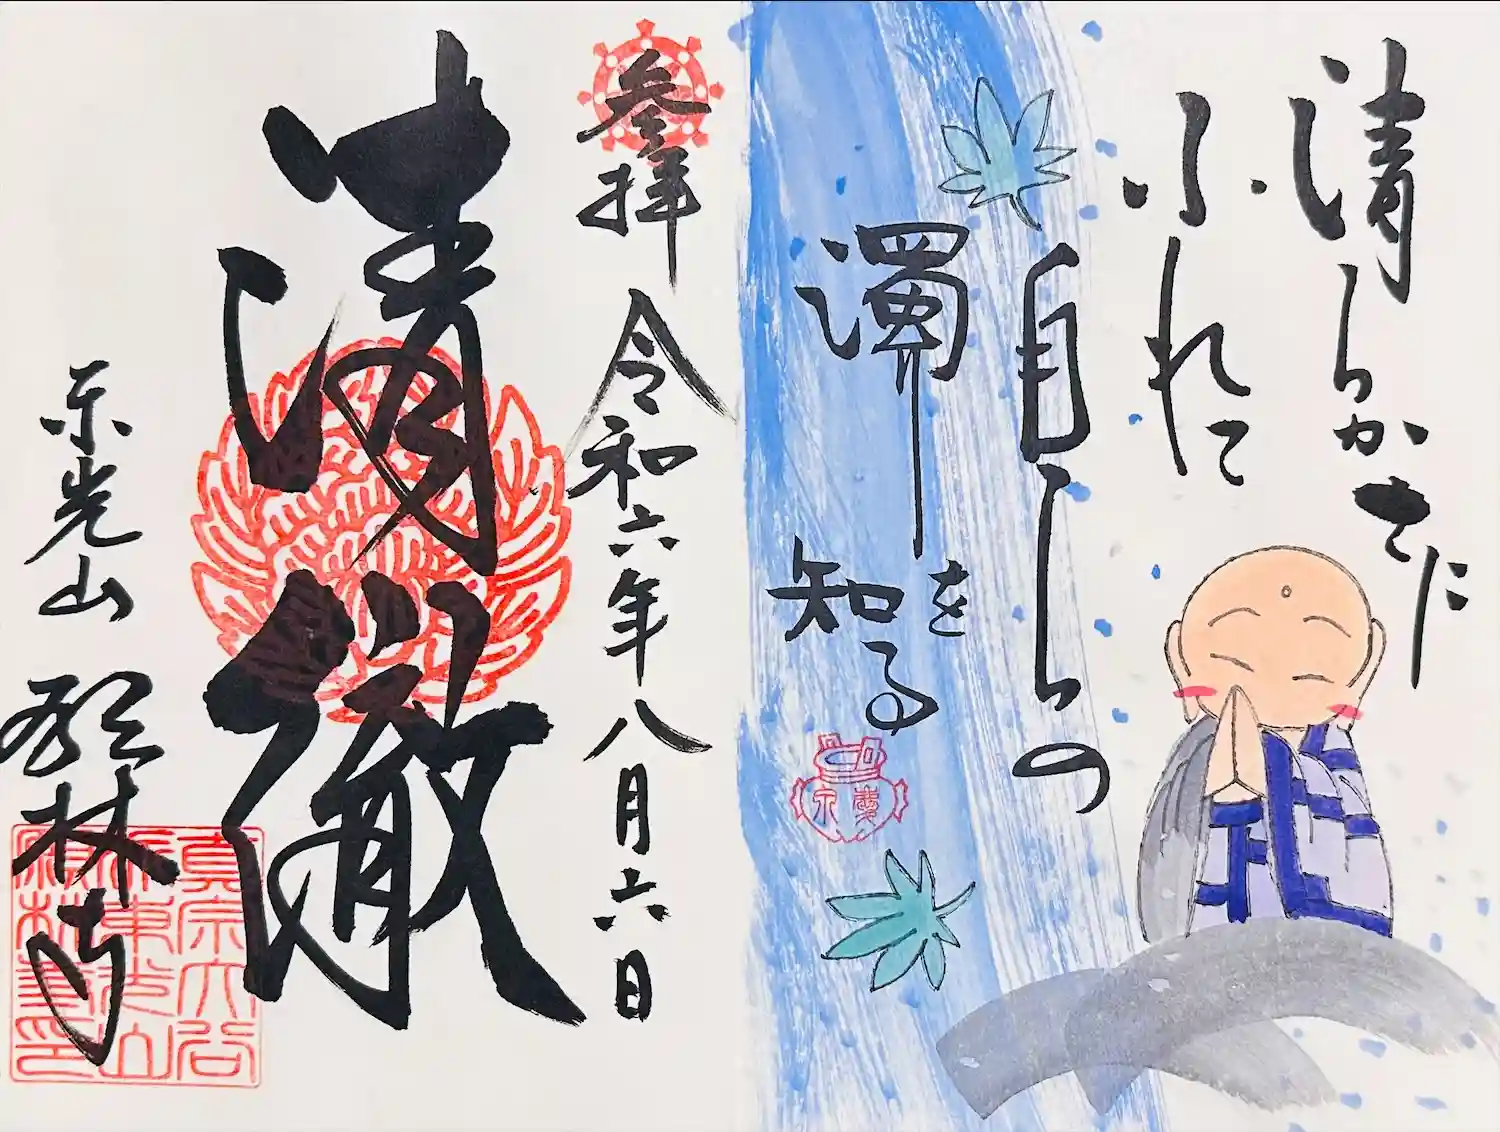 清らかさに
ふれて
自らの
濁りを
知る
参拝 令和六年八月六日
清徹
東光山 林寺
真宗大谷
派東光山
林寺印